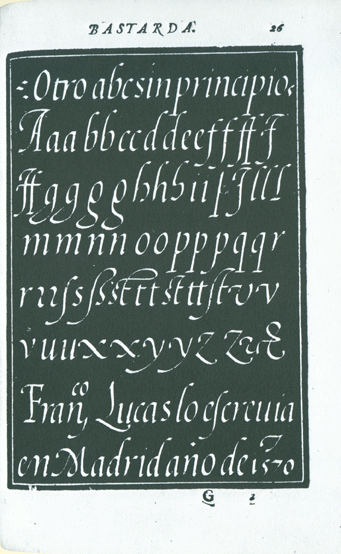 BASTARDA. 26
Otro abc sin principio
Aaabbccddeefffff
gggghhhiiſſlll
mmmnnooopppqqr
rrrſsſſsſtttſtttſtvv
vuuxxyyzzz&
Fran^co, Lucas lo eſcreuia
en Madrid año de 1570
G 2